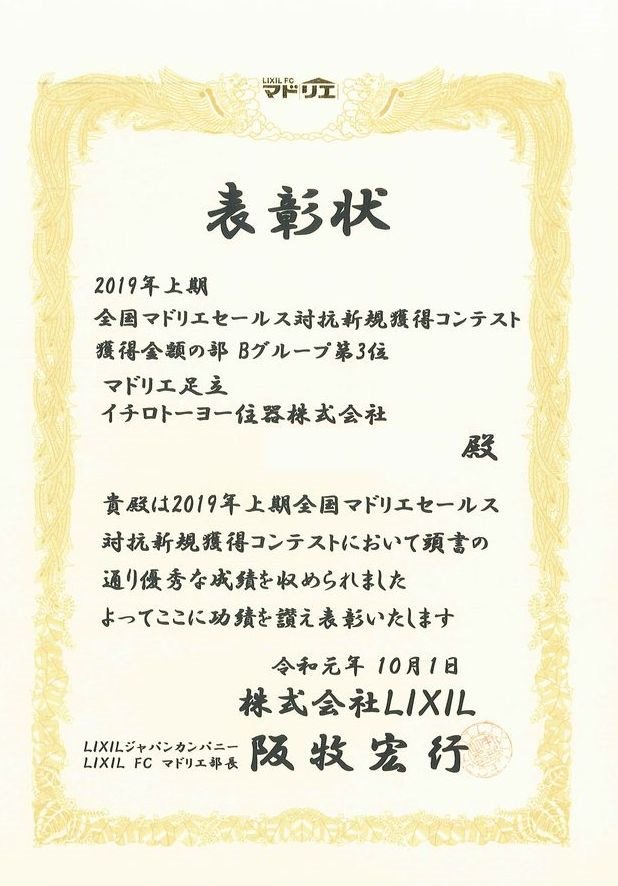 LIXIL FC
マドリエ
表彰状
2019年上期
全国マドリエセールス対抗新規獲得コンテスト
獲得金額の部 Bグループ第3位
マドリエ足立
イチロトーヨー住器株式会社
殿
貴殿は2019年上期全国マドリエセールス
対抗新規獲得コンテストにおいて頭書の
通り優秀な成績を収められました
よってここに功績を讃え表彰いたします
令和元年 10月1日
株式会社LIXIL
LIXILジャパンカンパニー
LIXIL FC マドリエ部長 阪牧宏行